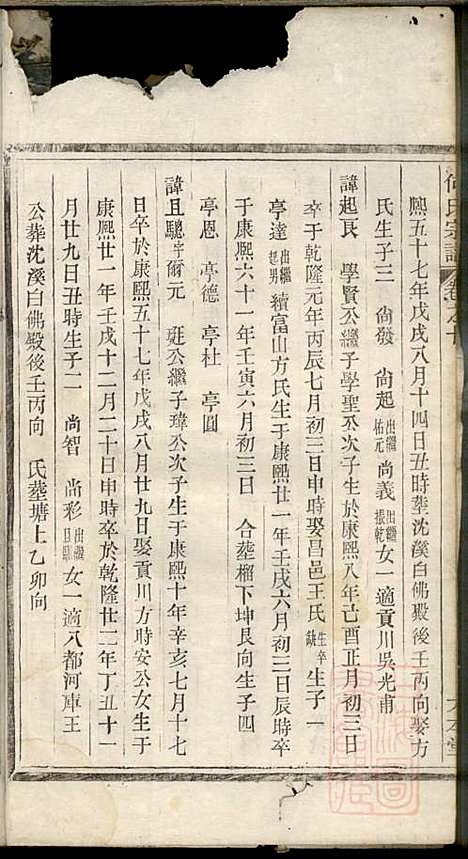 何氏宗譜 卷之十
熙五十七年戊戌八月十四日丑時葬沈溪白佛殿後壬丙向娶方
氏生子三 尚發 尚起出繼佑元 尚義出繼振乾 女一適貢川吳光甫
諱起艮 學賢公繼子學聖公次子生於康熙八年己酉正月初三日
卒于乾隆元年丙辰七月初三日申時娶昌邑王氏生卒缺生子一
亭達出繼起男 續富山方氏生于康熙廿一年壬戌六月初三日辰時卒
于康熙六十一年壬寅六月初三日 合葬榴下坤艮向生子四
亭恩 亭德 亭杜 亭圓
諱且驄字爾元 珽公繼子瑋公次子生于康熙十年辛亥七月十七
日卒於康熙五十七年戊戌八月廿九日娶貢川方時安公女生于
康熙廿一年壬戌十二月二十日申時卒於乾隆廿二年丁丑十一
月廿九日丑時生子二 尚智 尚彩出繼日 女一適八都河庫王
公葬沈溪白佛殿後壬丙向 氏葬塘上乙卯向